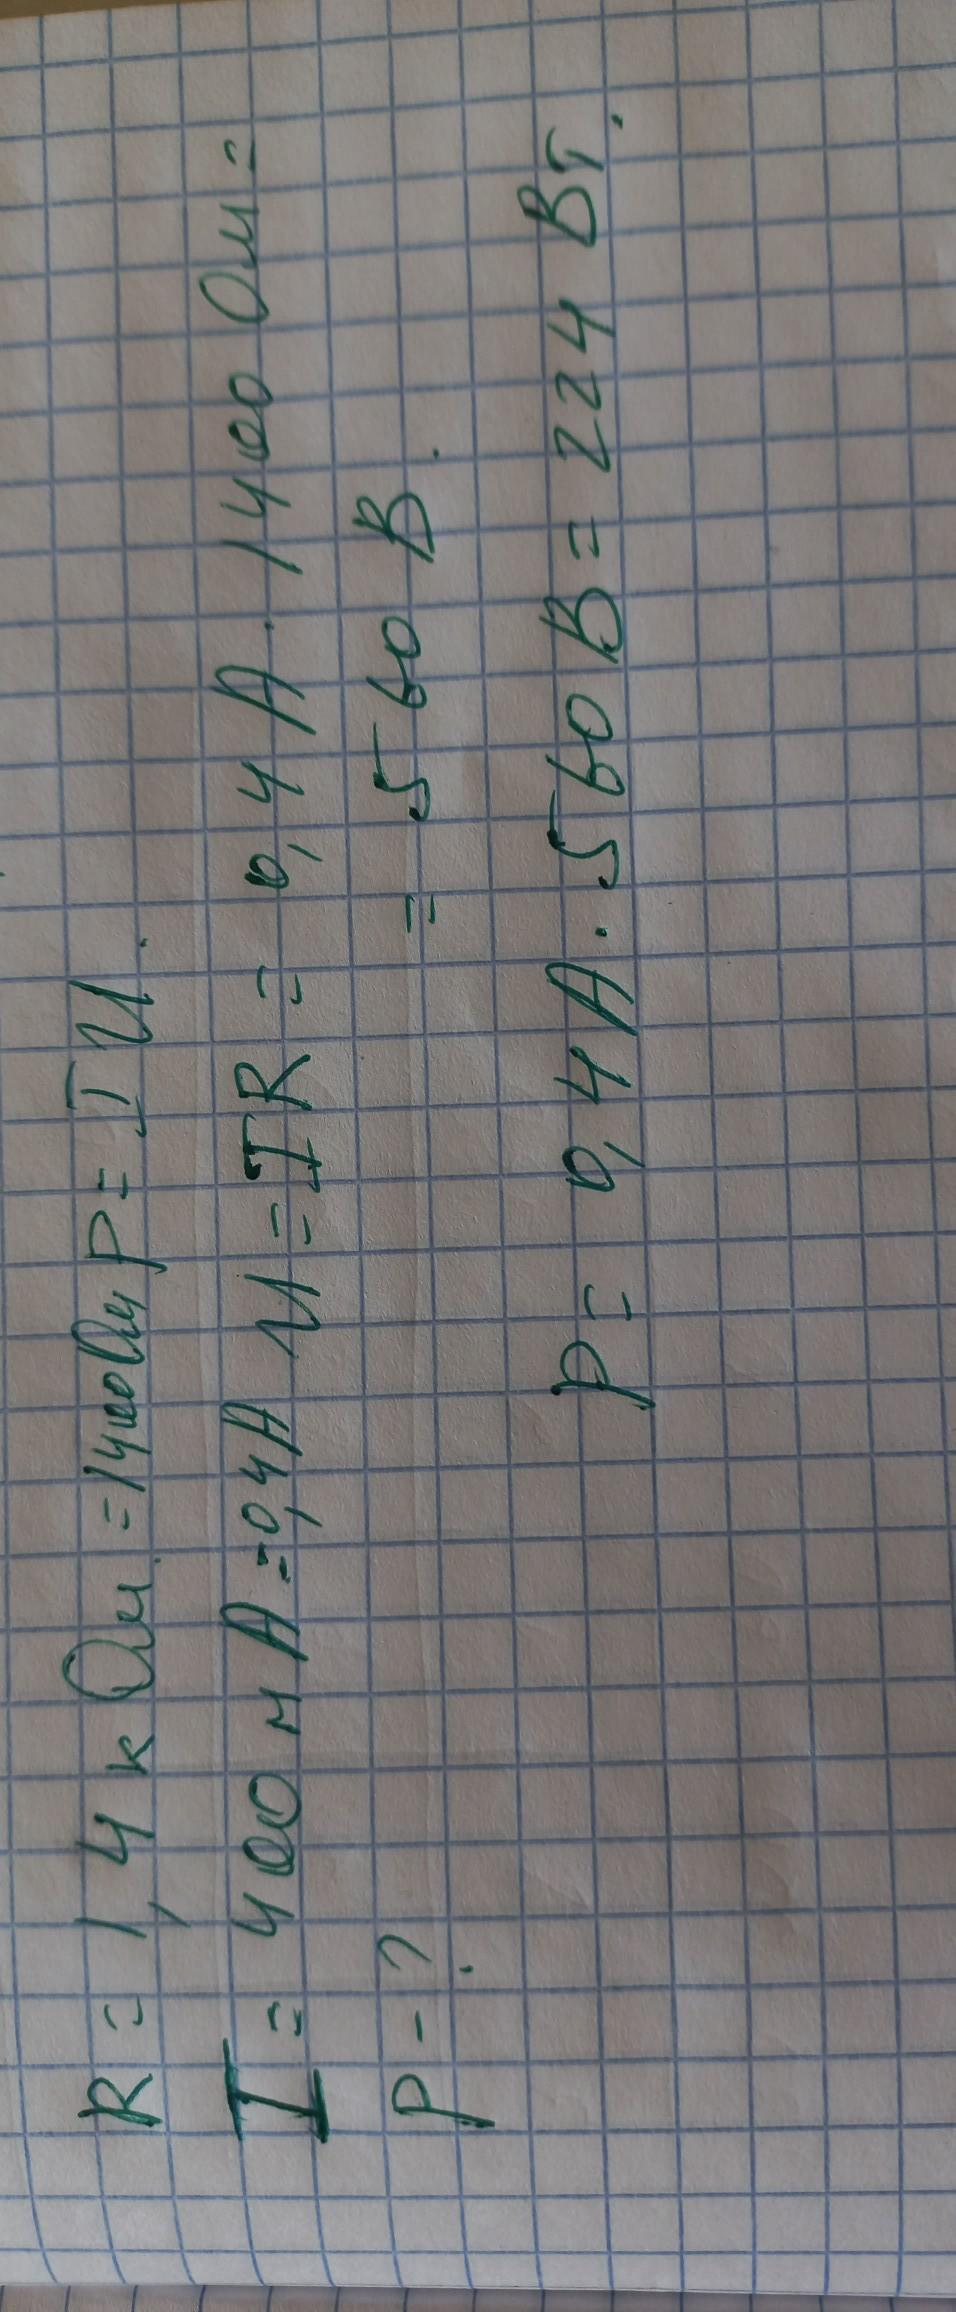 R = 1,4 кОм. = 1400Ом P = IU.
I = 400 мА = 0,4А U = IR = 0,4 А · 1400 Ом =
P - ? = 560 В.
P = 0,4А · 560 В = 224 Вт.